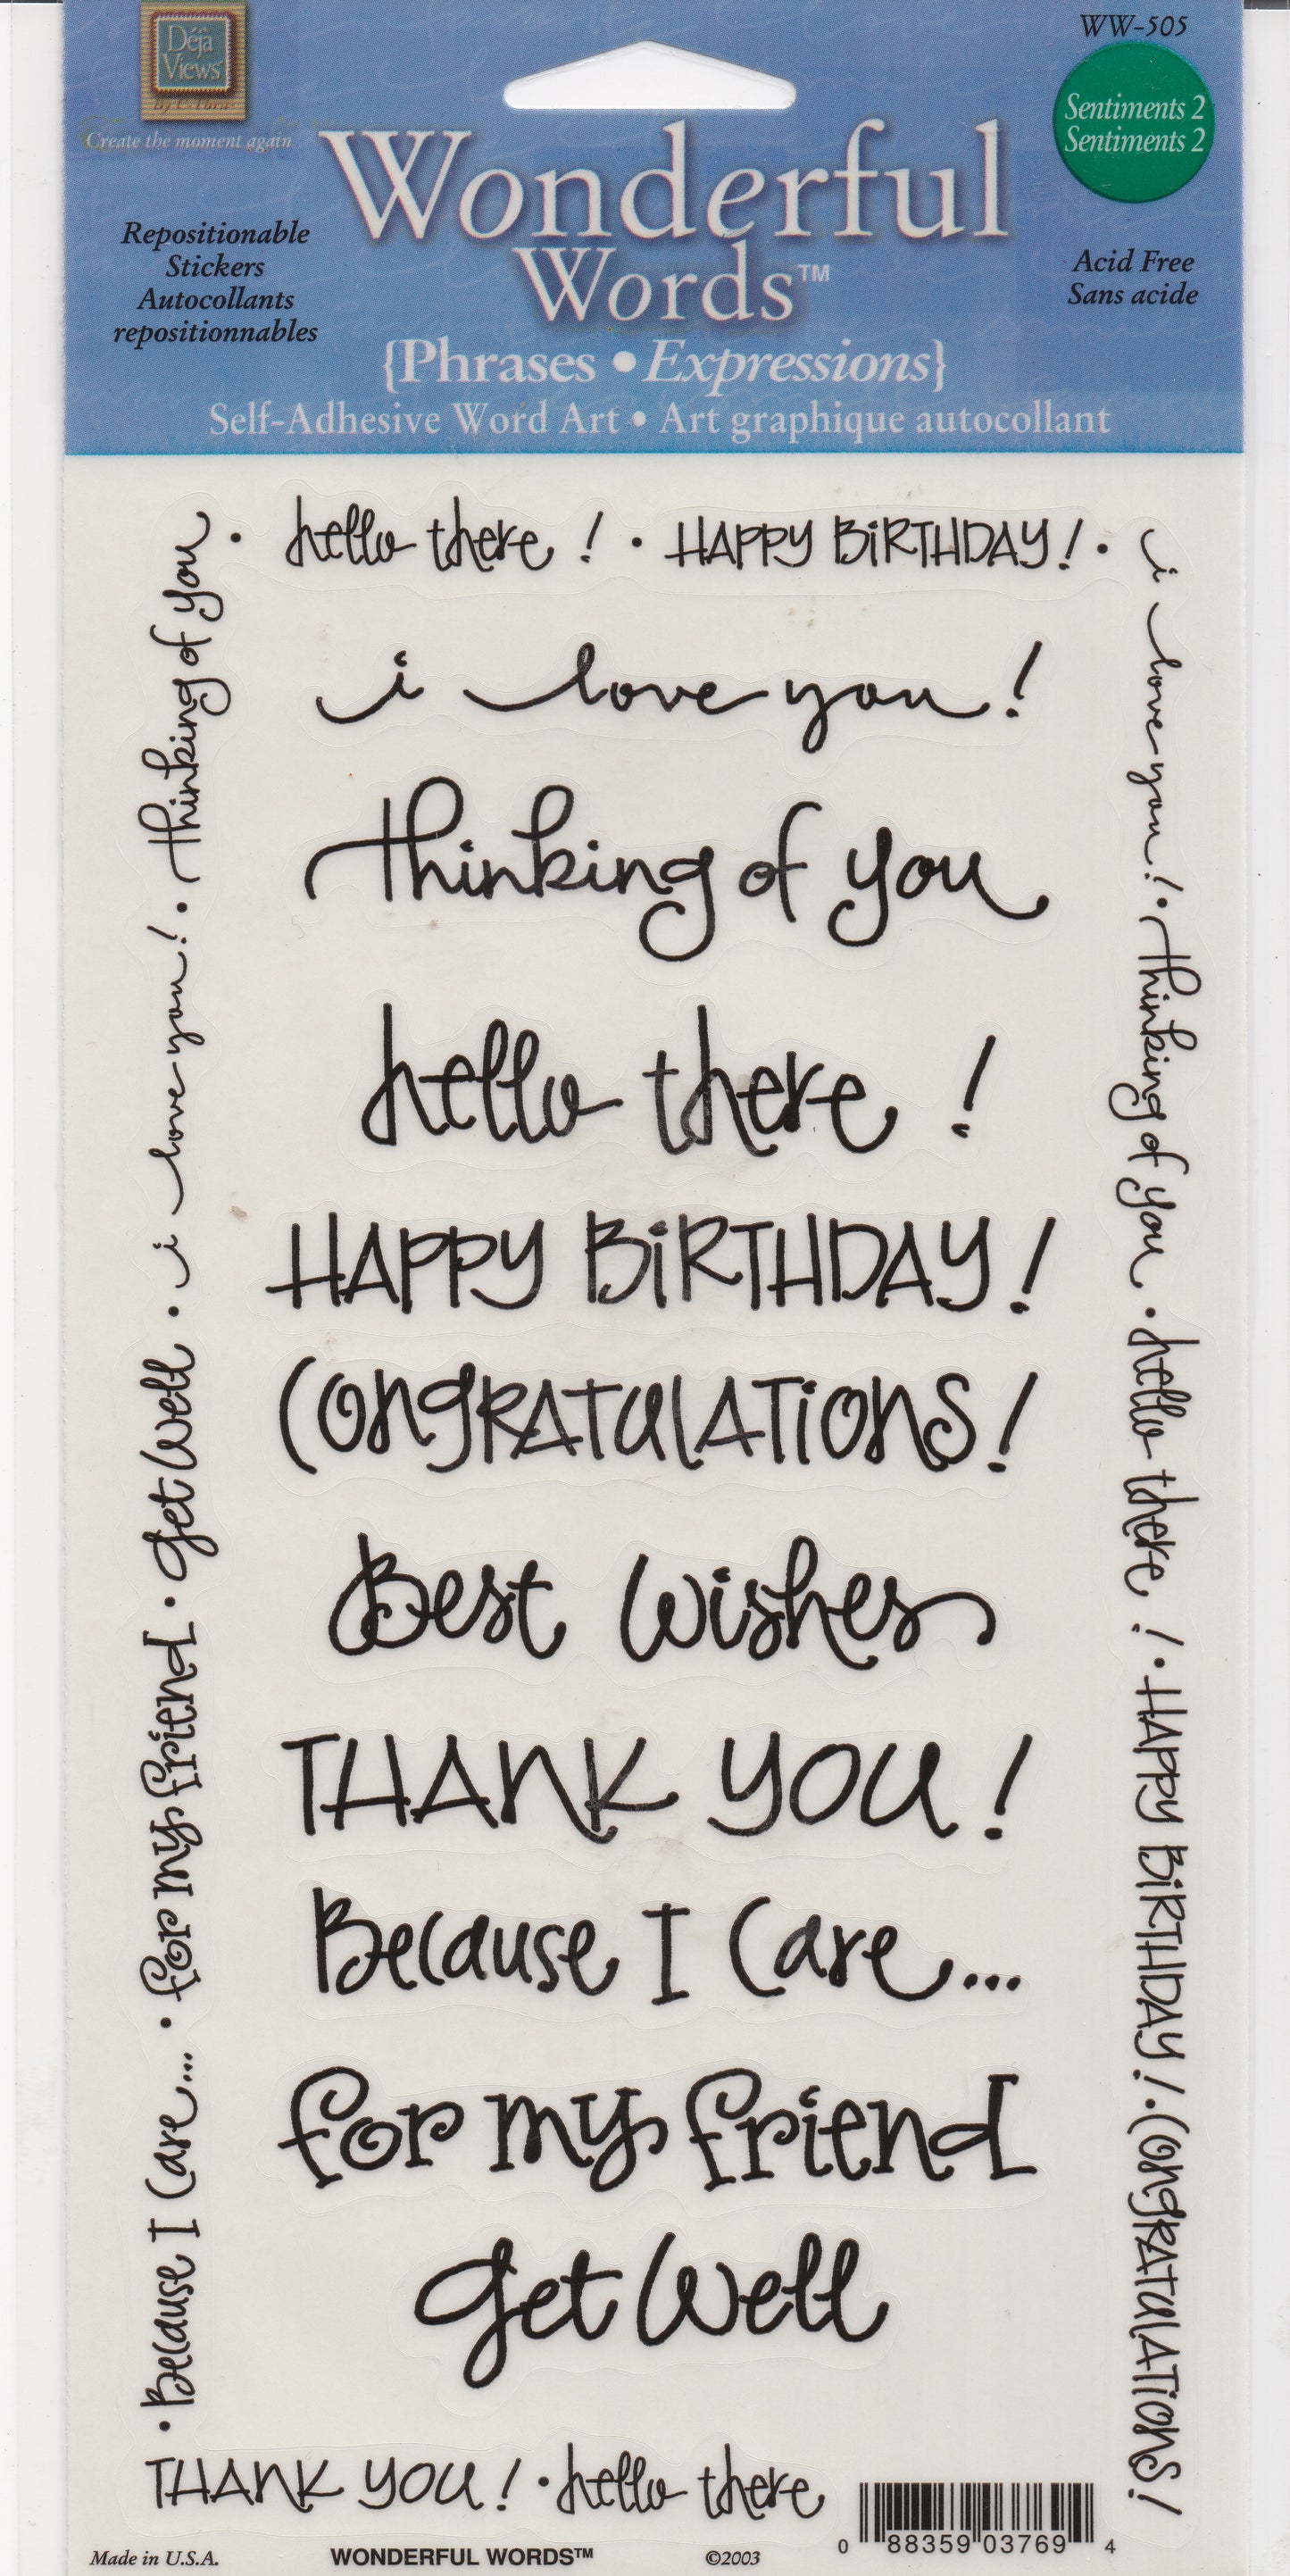 WW-505
Déjà
Views
Create the moment again
Sentiments 2
Sentiments 2
Wonderful
Words™
Repositionable
Stickers
Autocollants
repositionnables
Acid Free
Sans acide
{Phrases • Expressions}
Self-Adhesive Word Art • Art graphique autocollant
hello there ! • HAPPY BiRTHDAY! •
i love you!
thinking of you
hello there !
HAPPY BiRTHDAY!
CongRATulATions!
Best Wishes
THAnK YOU!
Because I Care...
for my friend
get Well
• Because I Care... • for my friend • get Well • i love you! • thinking of you •
i love you! • thinking of you • hello there ! • HAPPY BiRTHDAY! • CongRATulATions!
THAnK YOU! • hello there
0 88359 03769 4
Made in U.S.A.
WONDERFUL WORDS™
©2003